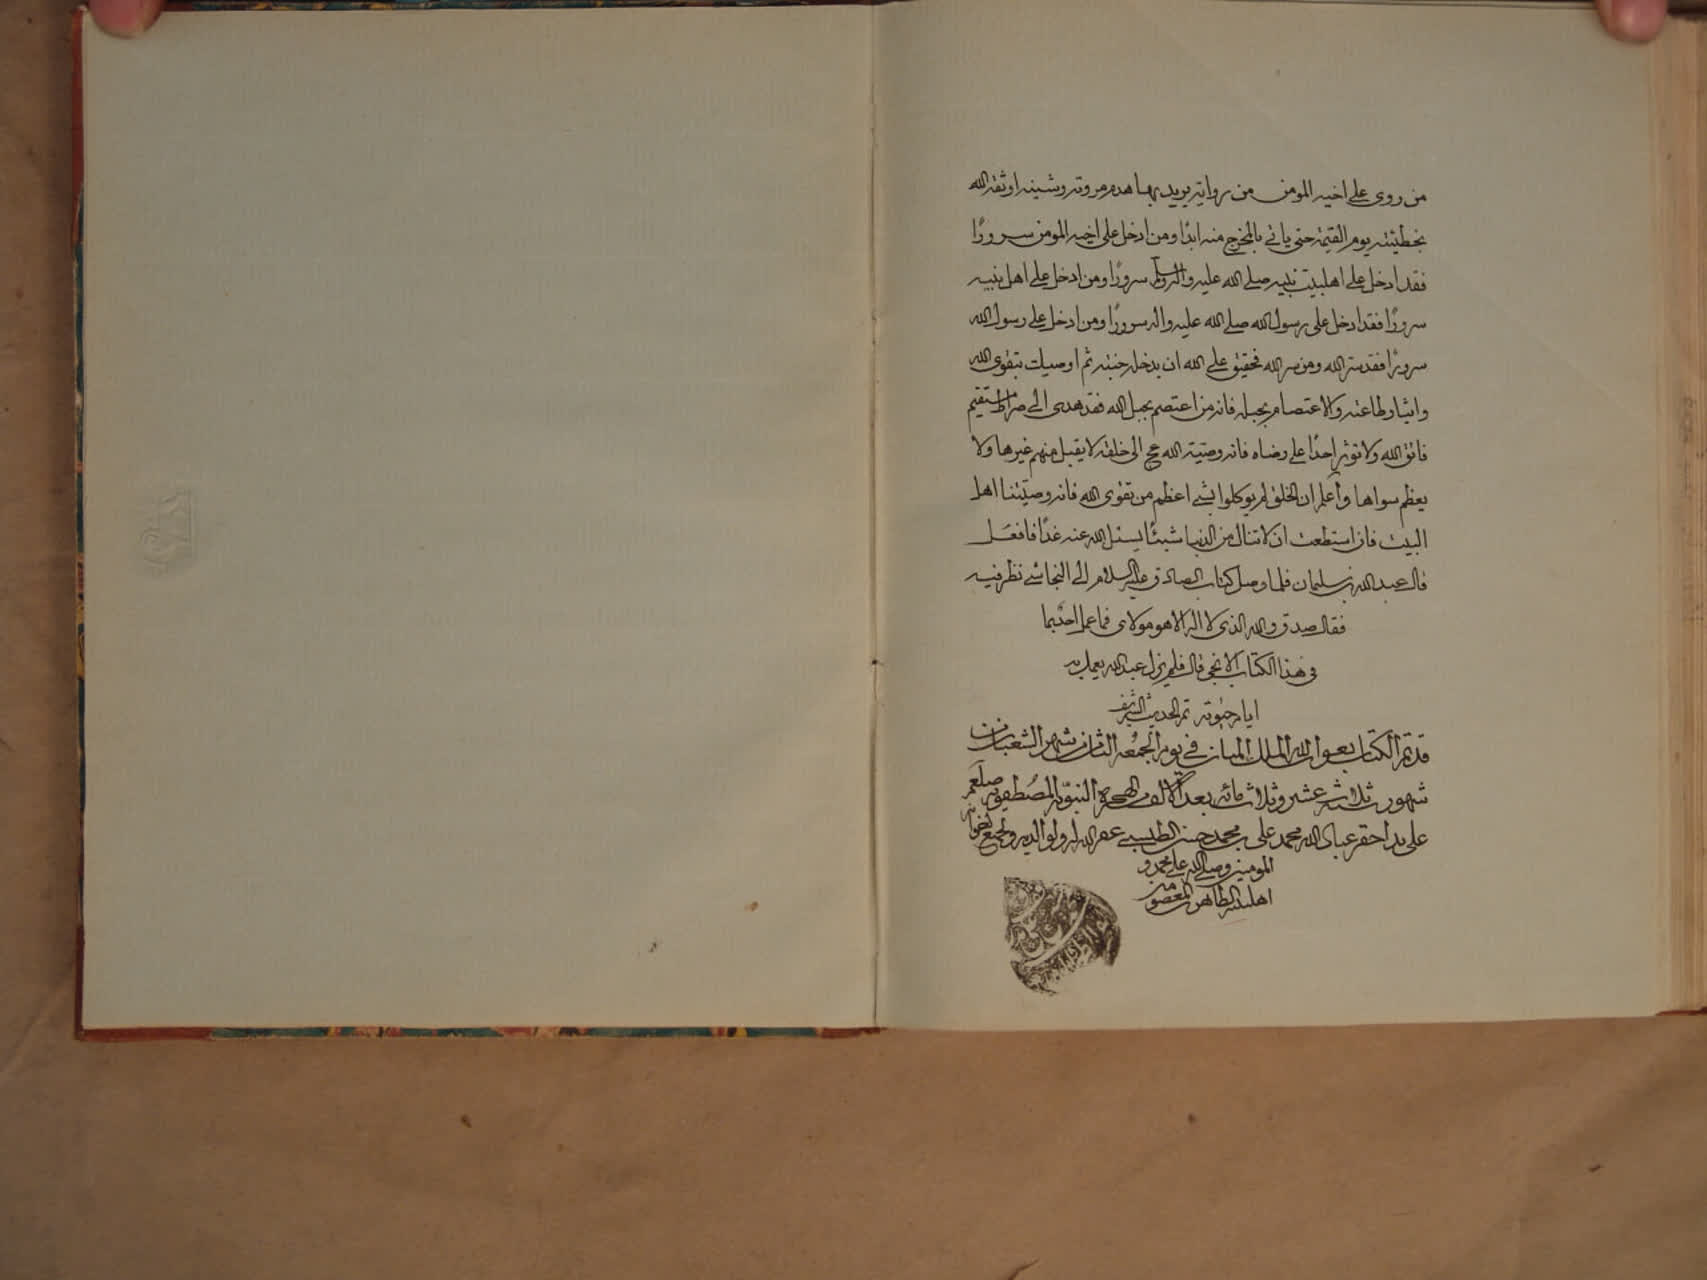 من روى على اخيه المومن من رواية يريد بها هدم مروته وشينه اوثقه الله
بخطيئته يوم القيمة حتى ياتى بالمخرج منه ابدًا ومن ادخل على اخيه المومن سرورًا
فقد ادخل على اهلبيت نبيه صلى الله عليه واله وسلم سرورًا ومن ادخل على اهل نبيه
سرورًا فقد ادخل على رسول الله صلى الله عليه واله سرورًا ومن ادخل على رسول الله
سرورًا فقد سر الله ومن سر الله فحقيق على الله ان يدخله جنته ثم اوصيك بتقوى الله
وايثار طاعته والاعتصام بحبله فانه من اعتصم بحبل الله فقد هدى الى صراط مستقيم
فاتق الله ولا توثر احدًا على رضاه فانه وصية الله عج الى خلقه لا يقبل منهم غيرها ولا
يعظم سواها واعلم ان الخلق لم يوكلوا بشئ اعظم من تقوى الله فانه وصيتنا اهل
البيت فان استطعت ان لا تنال من الدنيا شيئًا يسئل الله عنه غدًا فافعل
قال عبد الله بن سليمان فلما وصل كتاب الصادق عليه السلام الى النجاشى نظر فيه
فقال صدق والله الذى لا اله الا هو مولاى فما عمل احد بما
فى هذا الكتاب الا نجى قال فلم يزل عبد الله يعمل به
ايام حيوته تم الحديث الشريف
قد تم الكتاب بعون الله الملك المنان فى يوم الجمعه الثانى شهر الشعبان من
شهور ثلاثه عشر وثلاث مائه بعد الالف الهجرة النبويه المصطفويه صلعم
على يد احقر عباد الله محمد على بن محمد حسن الطبيب عفى الله له ولوالديه ولجميع اخوانه
المومنين وصلى الله على محمد و
اهلبيته الطاهرين المعصومين